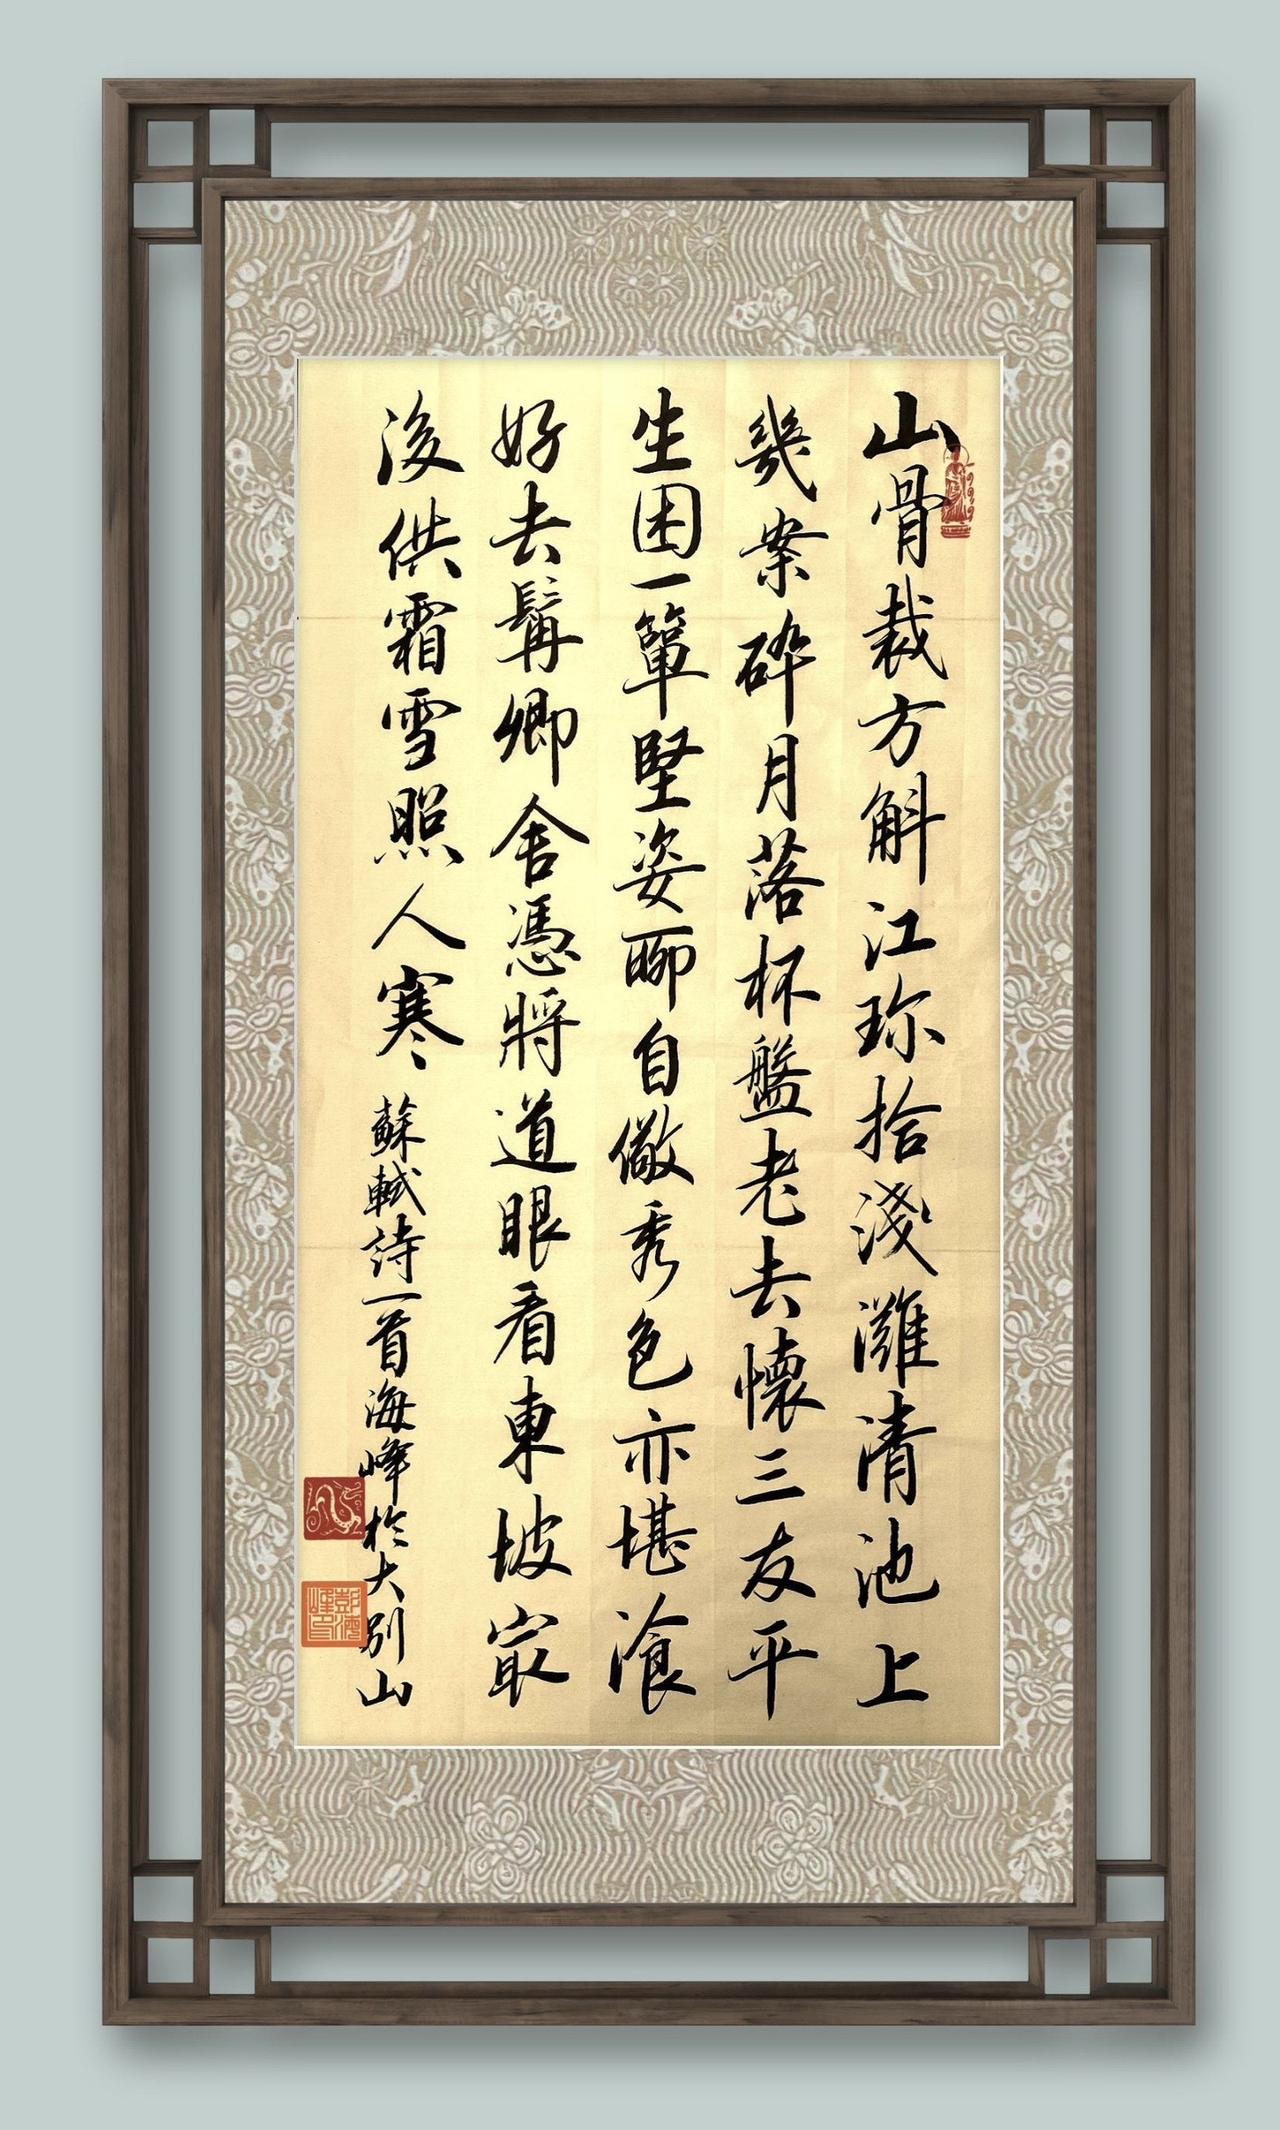 山骨裁方斛江珍拾淺灘清池上
幾案碎月落杯盤老去懷三友平
生困一簞堅姿聊自儆秀色亦堪湌
好去髯卿舍憑將道眼看東坡最
後供霜雪照人寒
蘇軾詩一首海峰於大別山
彭海峰印